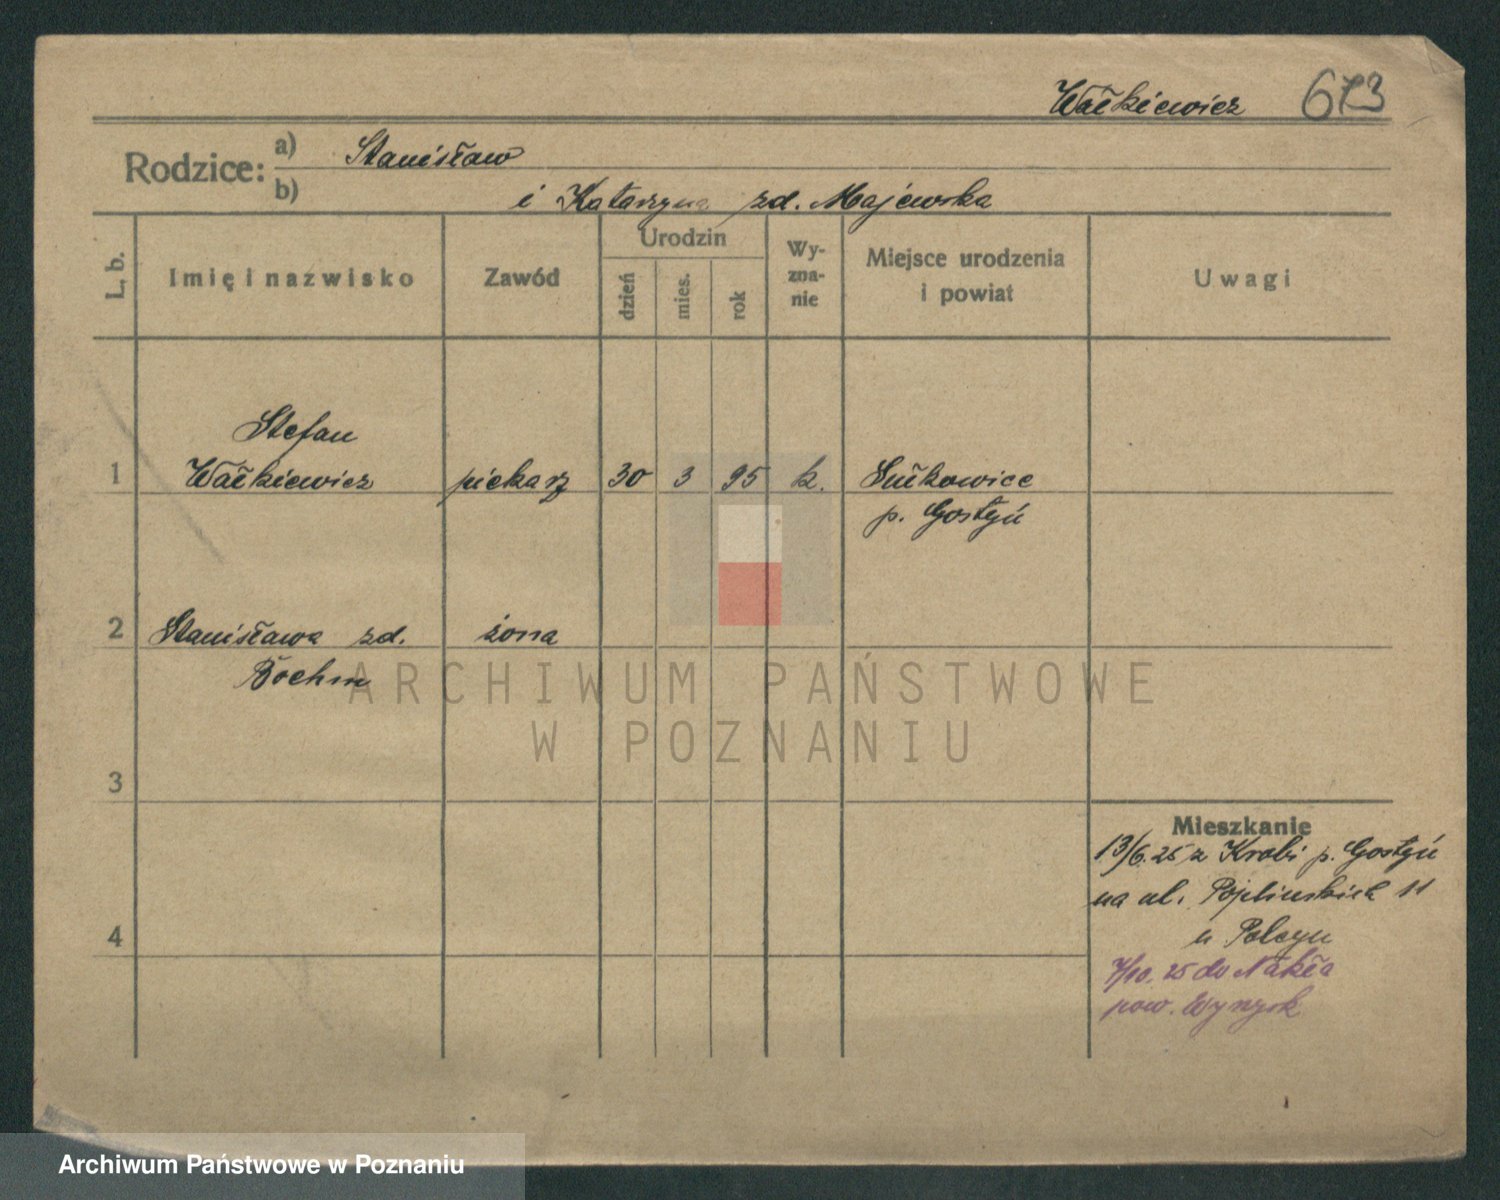 Wałkiewicz 673
Rodzice: a) Stanisław
b) i Katarzyna zd. Majewska
L. b. Imię i nazwisko Zawód Urodzin dzień mies. rok Wy-
zna-
nie Miejsce urodzenia
i powiat Uwagi
Stefan
1 Wałkiewicz piekarz 30 3 95 k. Sułkowice
p. Gostyń
2 Stanisława zd. żona
Boehm
ARCHIWUM PAŃSTWOWE
W POZNANIU
3
Mieszkanie
13/6.25 z Krobi p. Gostyń
na ul. 11
4 u
7/10.25 do Nakła
pow. Wyrzysk
Archiwum Państwowe w Poznaniu